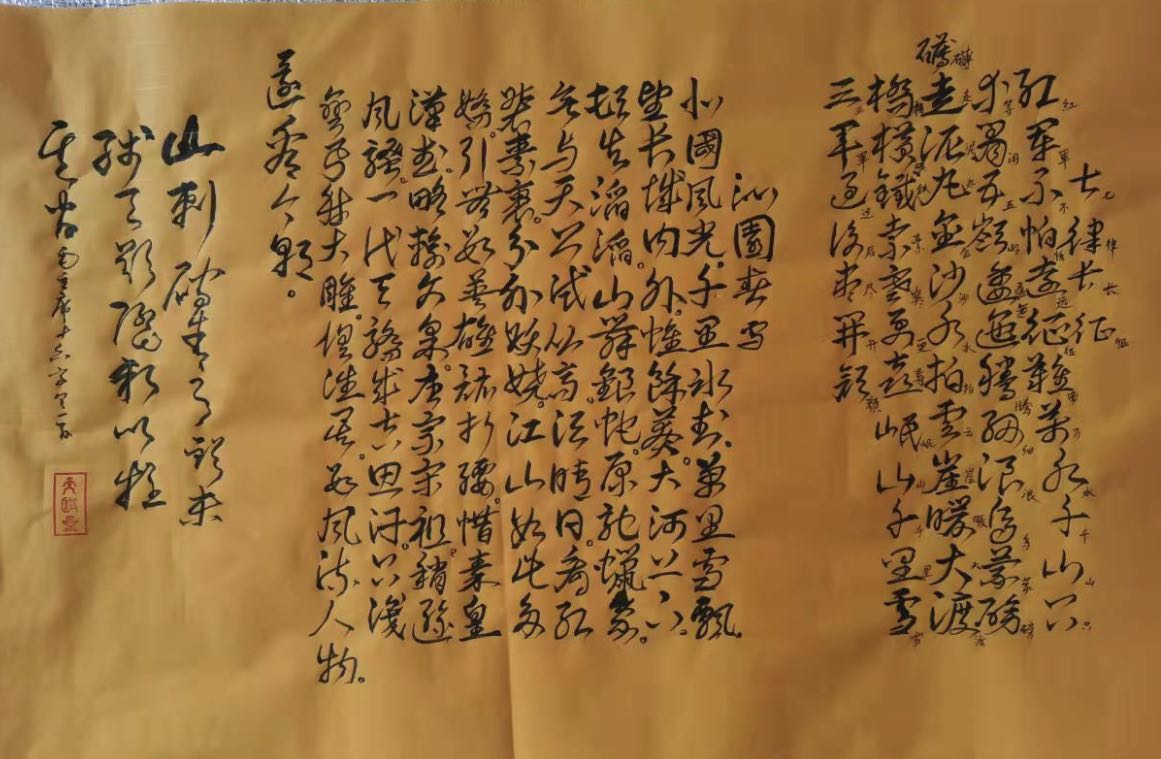 七律长征
红军不怕远征难万水千山只
等闲五嶺逶迤腾细浪乌蒙磅
礴走泥丸金沙水拍雲崖暖大渡
橋横鐵索寒更喜岷山千里雪
三军过后尽开颜
沁園春雪
北國风光。千里冰封。万里雪飘。
望长城内外。惟餘莽。大河上下。
顿失滔滔。山舞銀蛇。原驰蠟象。
欲与天公试比高。须晴日。看红
装素裹。分外妖娆。江山如此多
娇。引无数英雄竞折腰。惜秦皇
漢武。略输文采。唐宗宋祖稍逊
风骚。一代天骄成吉思汗。只识
弯弓射大雕。俱往矣。数风流人物。
還看今朝。
山刺破青天锷未
残天欲堕赖以拄
其间毛主席十六字令一首